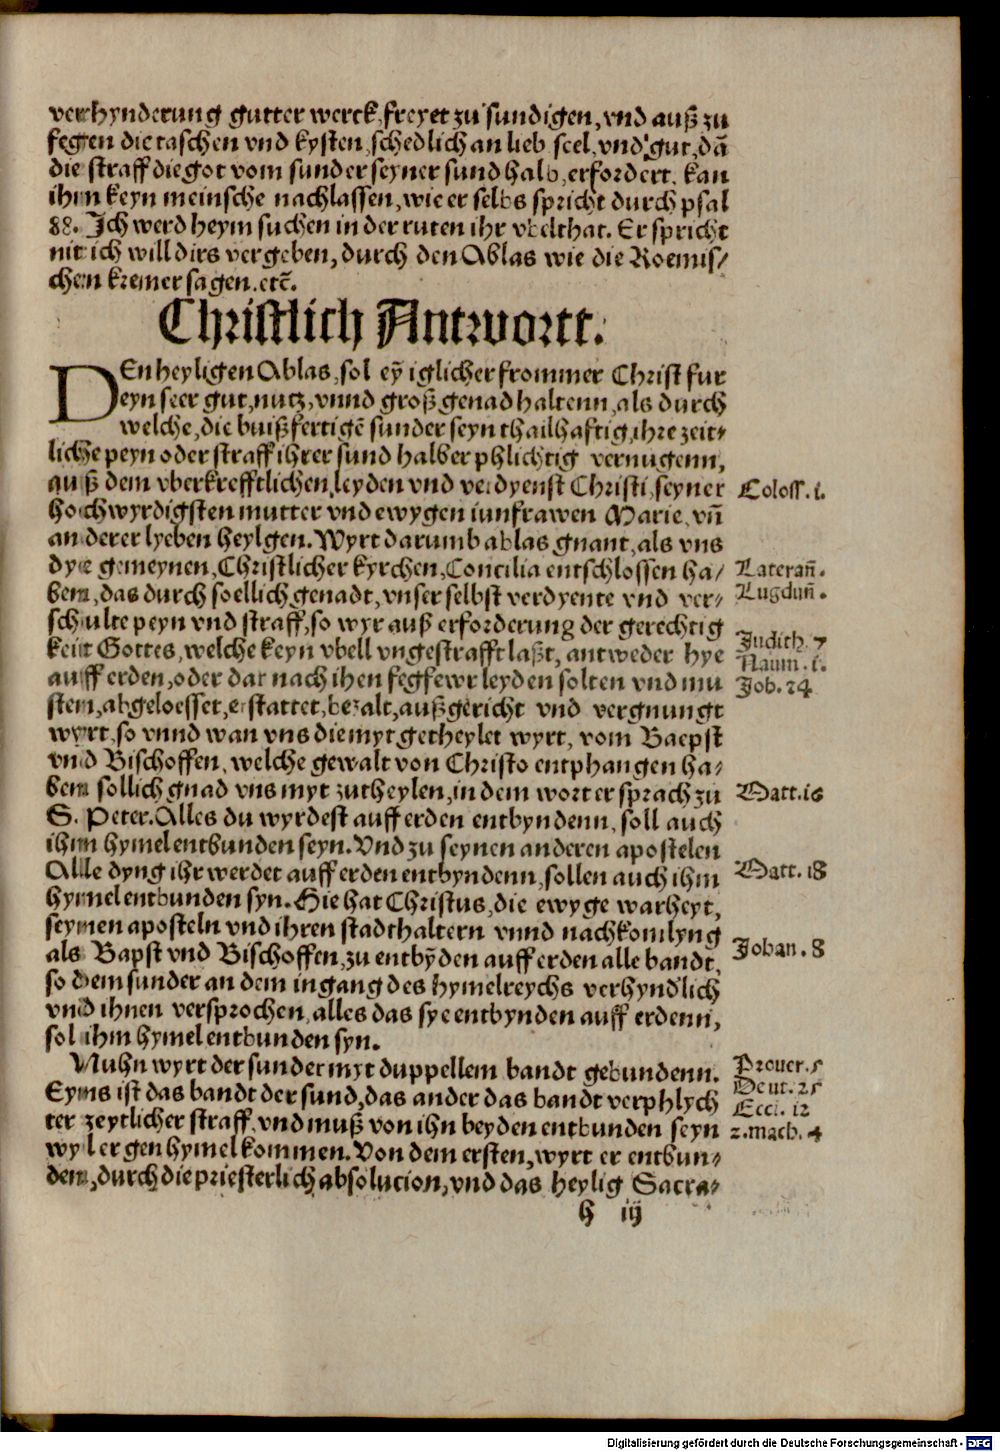 verhynderung gutter werck, freyet zu sundigen, vnd auß zu
fegen die taschen vnd kysten, schedlich an lieb seel, vnd gut, dā
die straff die got vom sunder seyner sund halb, erfordert, kan
ihm keyn meinsche nachlassen, wie er selbs spricht durch psal
88. Ich werd heym suchen in der ruten ihr vbelthat. Er spricht
nit ich will dirs vergeben, durch den Ablas wie die Roemis/
chen kremer sagen. etc̄.
Christlich Antwortt.
DEn heyligen Ablas, sol eỹ iglicher frommer Christ fur
eyn seer gut, nutz, vnnd groß genad haltenn, als durch
welche, die buißfertigē sunder seyn thailhaftig, ihre zeit/
liche peyn oder straff ihrer sund halber phlichtig vernugenn,
auß dem vberkrefftlichen leyden vnd verdyenst Christi, seyner
hochwyrdigsten mutter vnd ewygen iunfrawen Marie, vñ
anderer lyeben heylgen. Wyrt darumb ablas gnant, als vns
dye gemeynen, Christlicher kyrchen, Concilia entschlossen ha/
ben, das durch soellich genadt, vnser selbst verdyente vnd ver/
schulte peyn vnd straff, so wyr auß erforderung der gerechtig
keit Gottes, welche keyn vbell vngestrafft laßt, antweder hye
auff erden, oder dar nach ihen fegfewr leyden solten vnd mu
sten, abgeloesset, erstattet, bezalt, außgericht vnd vergnungt
wyrt, so vnnd wan vns die mytgetheylet wyrt, vom Baepst
vnd Bischoffen, welche gewalt von Christo entphangen ha/
ben sollich gnad vns myt zutheylen, in dem wort er sprach zu
S. Peter. Alles du wyrdest auff erden entbyndenn, soll auch
ihm hymel entbunden seyn. Vnd zu seynen anderen apostelen
Alle dyng ihr werdet auff erden entbyndenn, sollen auch ihm
hymel entbunden syn. Hie hat Christus, die ewyge warheyt,
seynen aposteln vnd ihren stadthaltern vnnd nachkomlyng
als Bapst vnd Bischoffen, zu entbỹden auff erden alle bandt,
so dem sunder an dem ingang des hymelreychs verhyndlich
vnd ihnen versprochen, alles das sye entbynden auff erdenn,
sol ihm hymel entbunden syn.
Nuhn wyrt der sunder myt duppellem bandt gebundenn.
Eyns ist das bandt der sund, das ander das bandt verphlych
ter zeytlicher straff, vnd muß von ihn beyden entbunden seyn
wyl er gen hymel kommen. Von dem ersten, wyrt er entbun/
den, durch die priesterlich absolucion, vnd das heylig Sacra/
h iij
Coloss. i.
Laterañ.
Lugduñ.
Judith. 7
Naum. i.
Job. 24
Matt. 16
Matt. 18
Johan. 8
Prouer. 5
Deut. 25
Eccl. 12
2. mach. 4
Digitalisierung gefördert durch die Deutsche Forschungsgemeinschaft - DFG